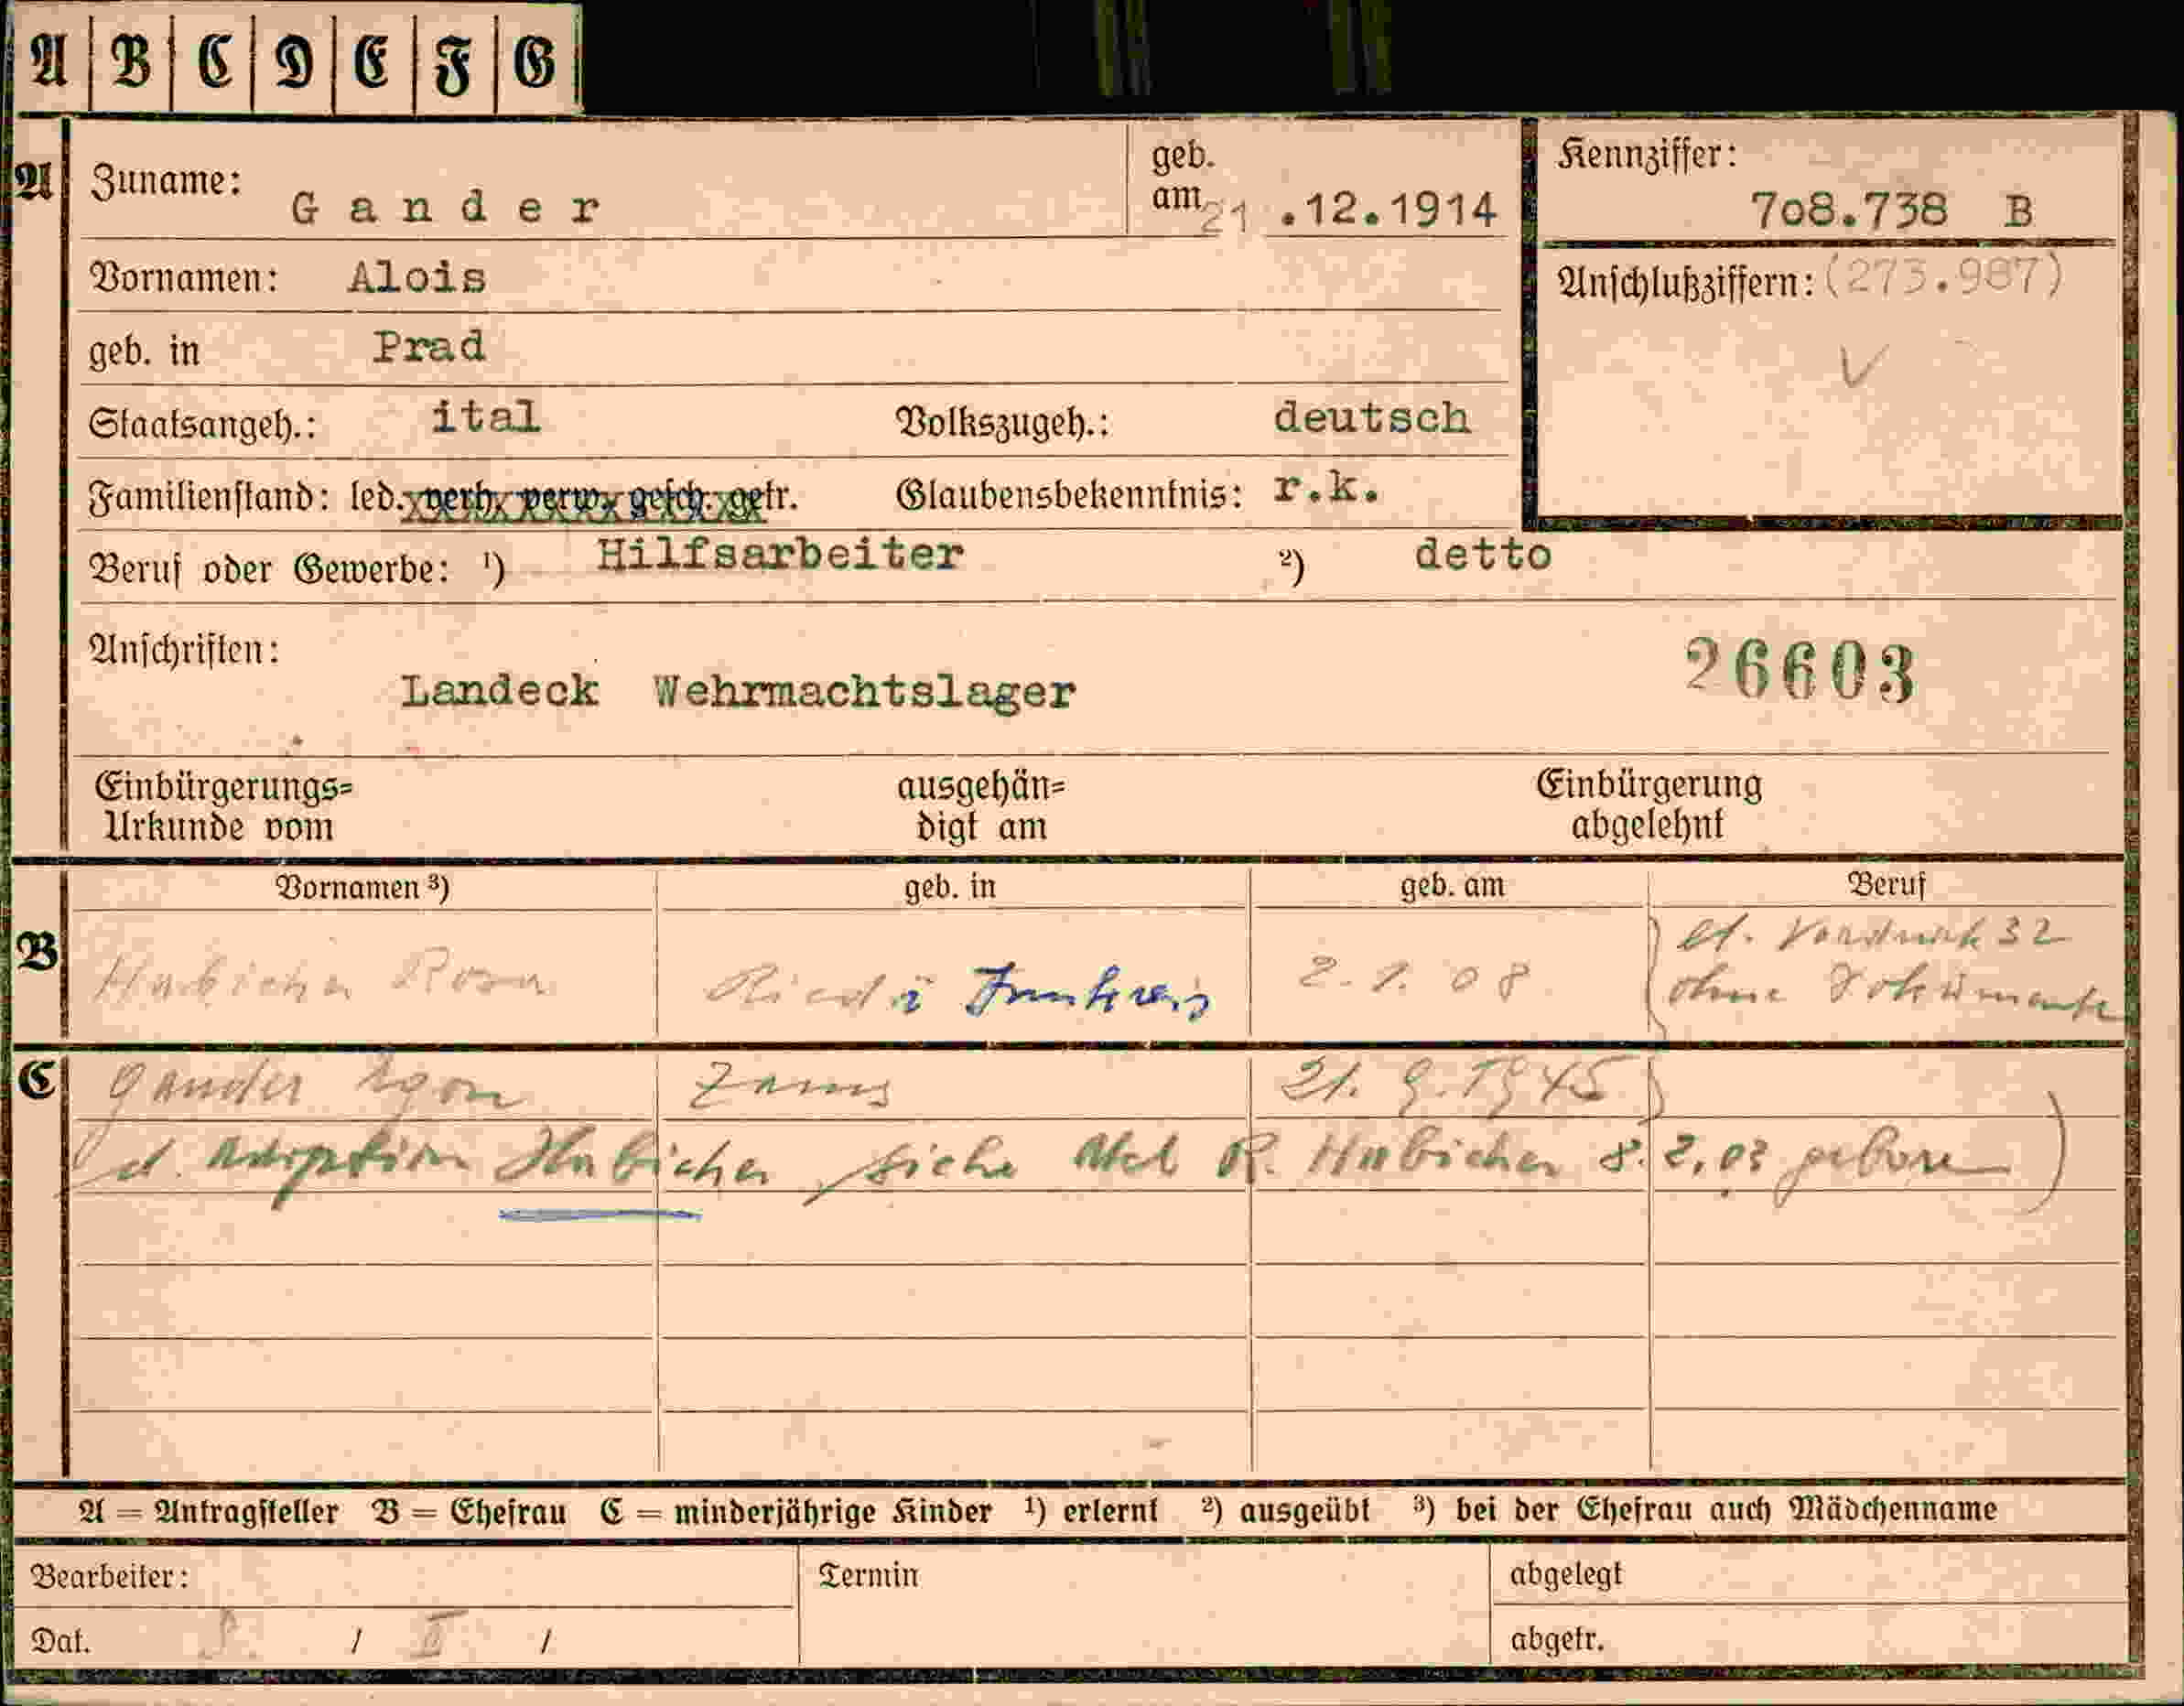 A B C D E F G
A Zuname: Gander geb. am 21.12.1914 Kennziffer: 708.738 B
Vornamen: Alois Anschlußziffern: (273.987)
geb. in Prad
Staatsangeh.: ital Volkszugeh.: deutsch
Familienstand: led. verh. verw. gesch. getr. Glaubensbekenntnis: r.k.
Beruf oder Gewerbe: ¹) Hilfsarbeiter ²) detto
Anschriften: 26603
Landeck Wehrmachtslager
Einbürgerungs= ausgehän= Einbürgerung
Urkunde vom digt am abgelehnt
Vornamen ³) geb. in geb. am Beruf
B Habicher Rosa Ried i Innkreis 2.1.08 lt. Vordruck 32
ohne Dokumente
C Gander Egon Zams 21.9.1945
d. Adoption Habicher, siehe Akt R. Habicher 8.2.03 geboren)
A = Antragsteller B = Ehefrau C = minderjährige Kinder ¹) erlernt ²) ausgeübt ³) bei der Ehefrau auch Mädchenname
Bearbeiter: Termin abgelegt
Dat. / II / abgetr.